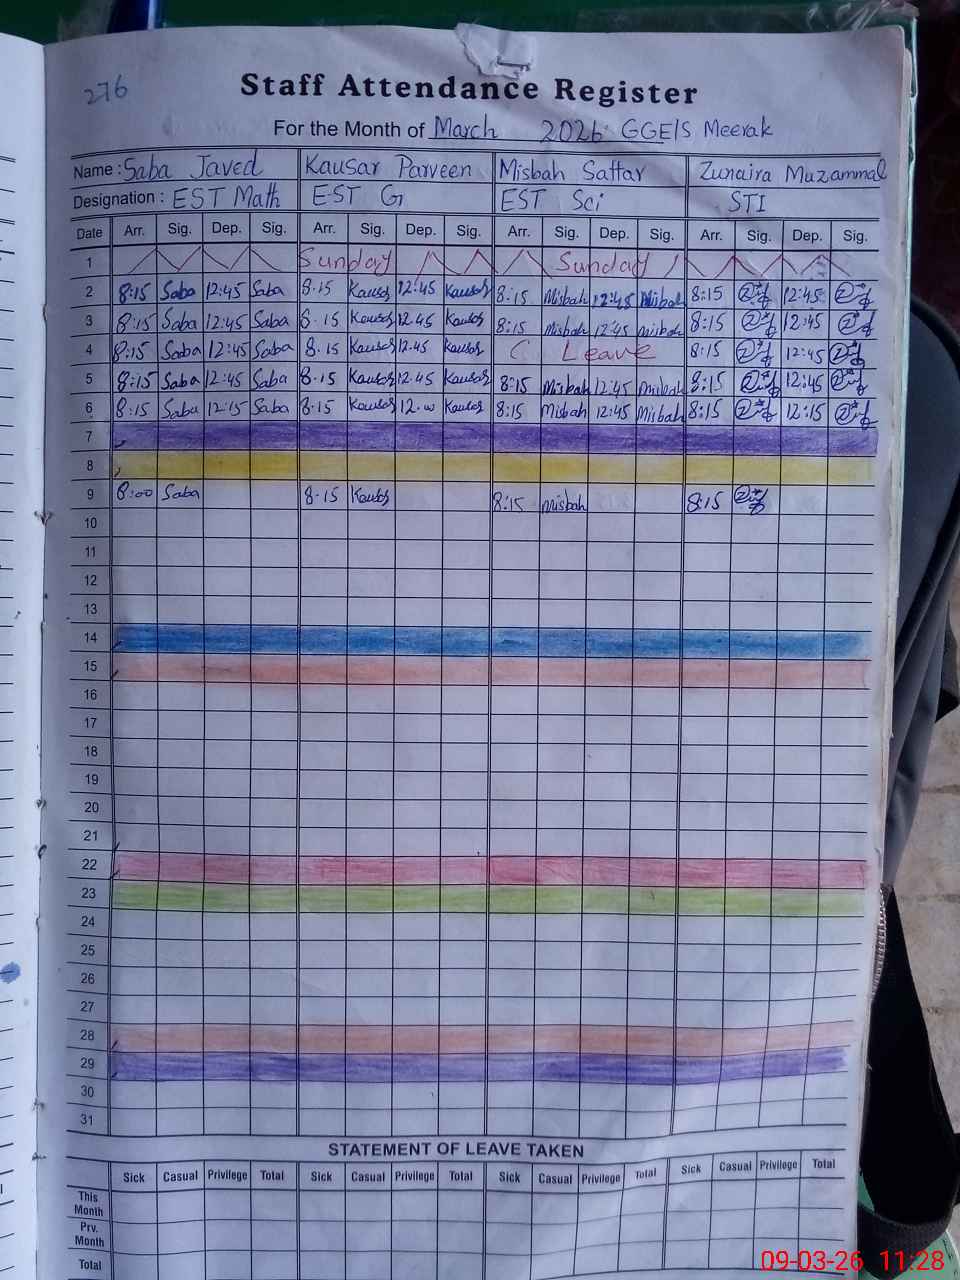 276
Staff Attendance Register
For the Month of March 2026 GGE/S Meerak
Name : Saba Javed Kausar Parveen Misbah Sattar Zunaira Muzammal
Designation : EST Math EST G EST Sci STI
Date Arr. Sig. Dep. Sig. Arr. Sig. Dep. Sig. Arr. Sig. Dep. Sig. Arr. Sig. Dep. Sig.
1 Sunday Sunday
2 8:15 Saba 12:45 Saba 8.15 Kausar 12.45 Kausar 8:15 Misbah 12:45 Misbah 8:15 12:45
3 8:15 Saba 12:45 Saba 8.15 Kausar 12.45 Kausar 8:15 Misbah 12:45 Misbah 8:15 12:45
4 8:15 Saba 12:45 Saba 8.15 Kausar 12.45 Kausar Leave 8:15 12:45
5 8:15 Saba 12:45 Saba 8.15 Kausar 12.45 Kausar 8:15 Misbah 12:45 Misbah 8:15 12:45
6 8:15 Saba 12:15 Saba 8.15 Kausar Kausar 8:15 Misbah 12:45 Misbah 8:15 12:15
7
8
9 8:00 Saba 8.15 Kausar 8:15 Misbah 8:15
10
11
12
13
14
15
16
17
18
19
20
21
22
23
24
25
26
27
28
29
30
31
STATEMENT OF LEAVE TAKEN
Sick Casual Privilege Total Sick Casual Privilege Total Sick Casual Privilege Total Sick Casual Privilege Total
This Month
Prv. Month
Total
09-03-26 11:28